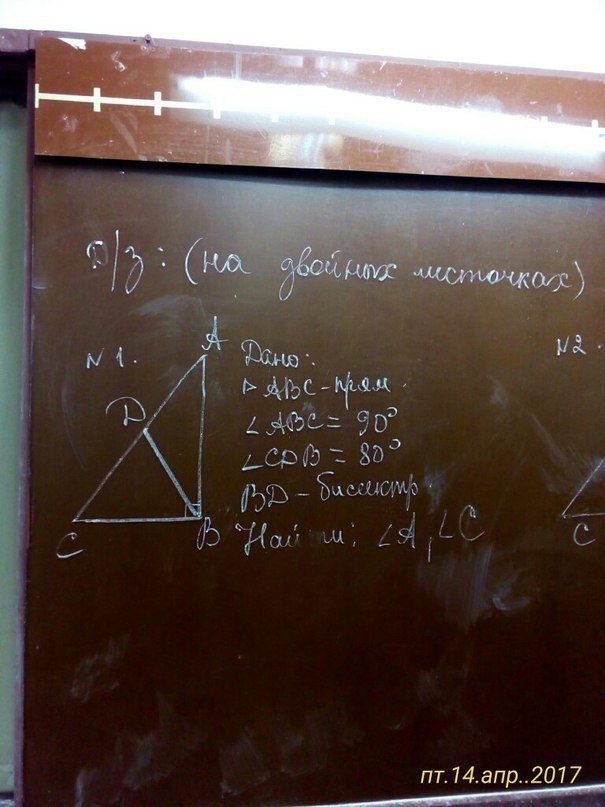 Д/З: (на двойных листочках)
N1.
A
D
C
B
Дано:
▷ ABC - прям.
∠ABC = 90°
∠CDB = 80°
BD - биссектр.
Найти: ∠A, ∠C
N2.
C
пт.14.апр..2017